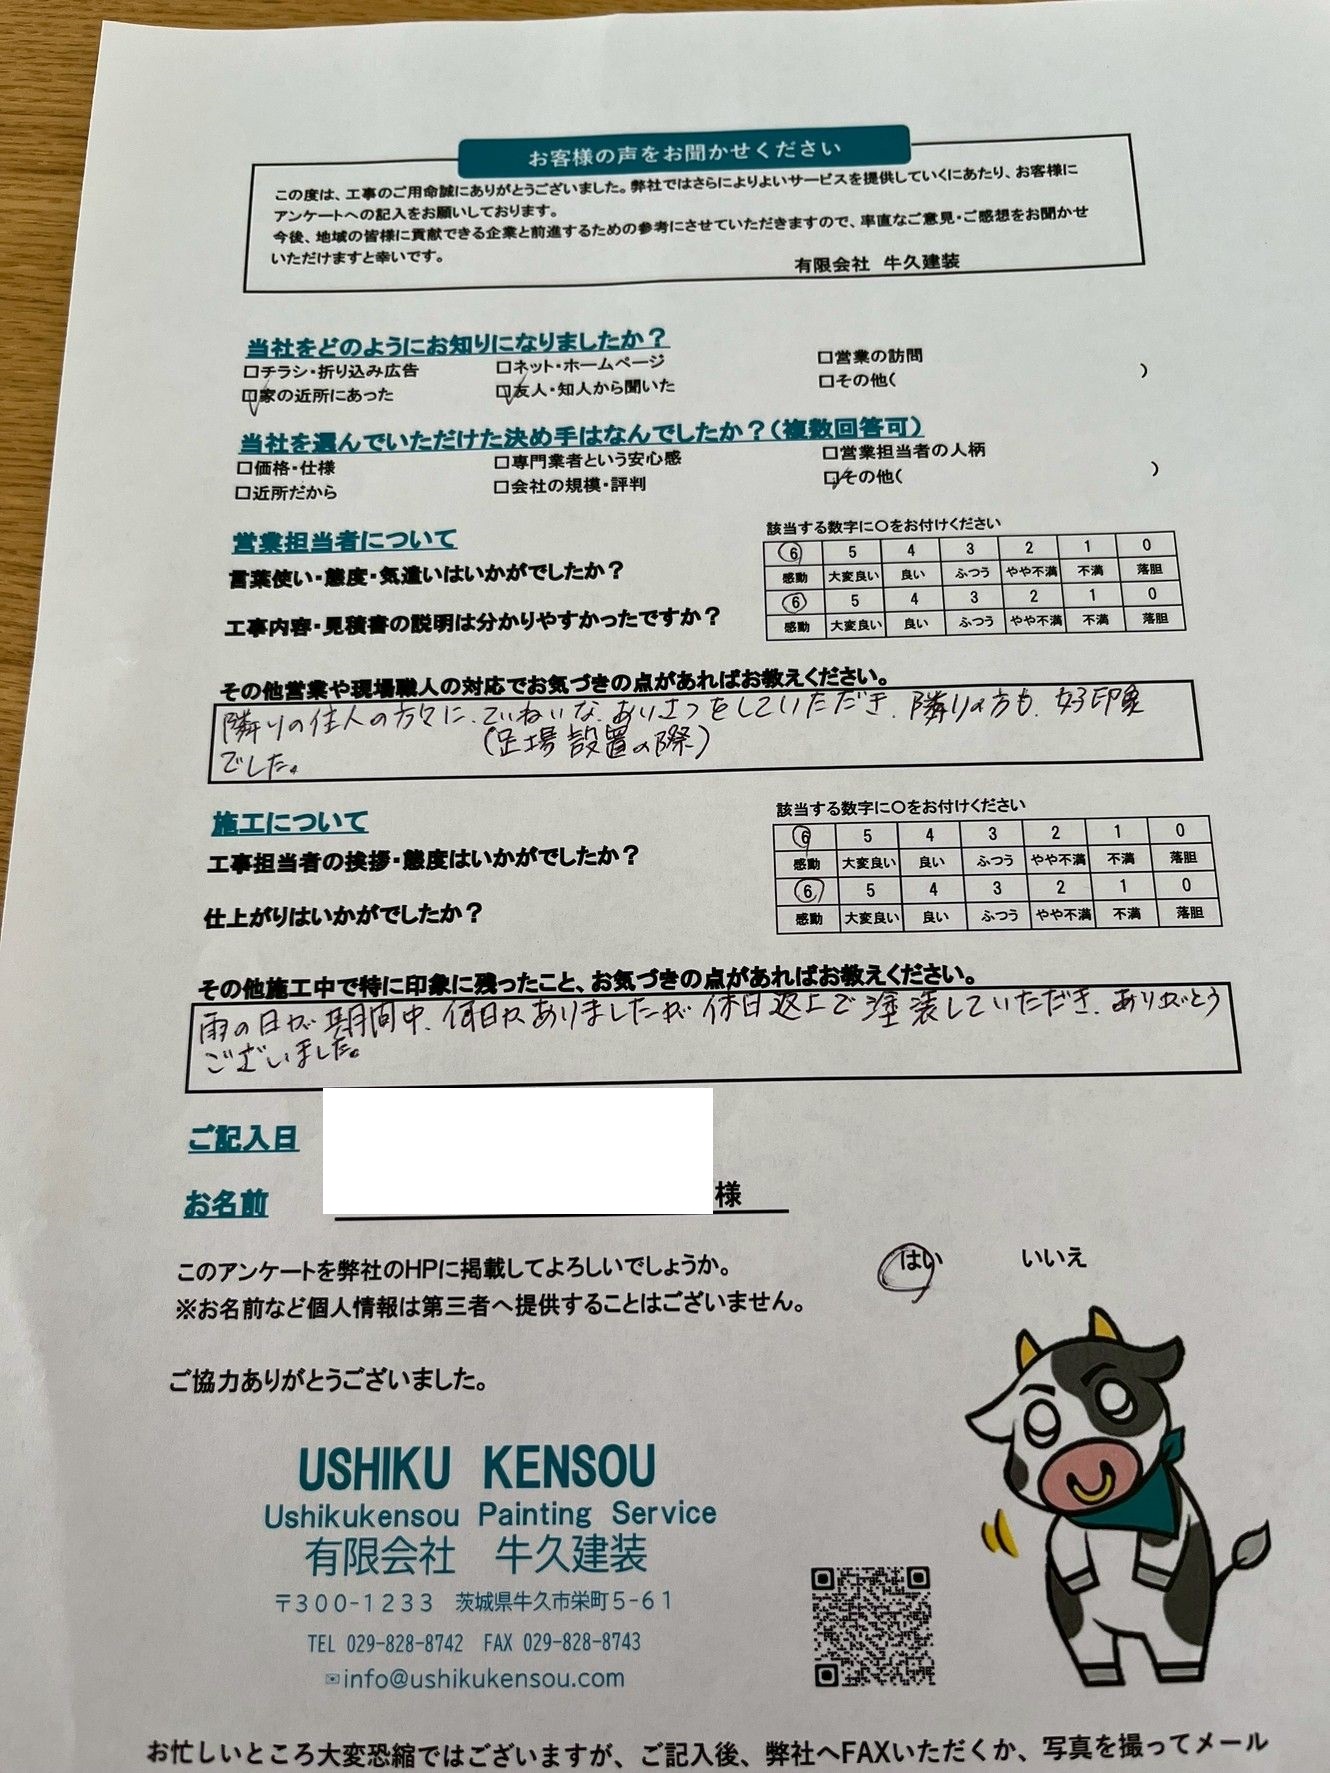 お客様の声をお聞かせください
この度は、工事のご用命誠にありがとうございました。弊社ではさらによりよいサービスを提供していくにあたり、お客様に
アンケートへの記入をお願いしております。
今後、地域の皆様に貢献できる企業と前進するための参考にさせていただきますので、率直なご意見・ご感想をお聞かせ
いただけますと幸いです。
有限会社 牛久建装
当社をどのようにお知りになりましたか？
□チラシ・折り込み広告 □ネット・ホームページ □営業の訪問
☑家の近所にあった ☑友人・知人から聞いた □その他( )
当社を選んでいただけた決め手はなんでしたか？(複数回答可)
□価格・仕様 □専門業者という安心感 □営業担当者の人柄
□近所だから □会社の規模・評判 ☑その他( )
営業担当者について
該当する数字に〇をお付けください
言葉使い・態度・気遣いはいかがでしたか？
6 5 4 3 2 1 0
感動 大変良い 良い ふつう やや不満 不満 落胆
工事内容・見積書の説明は分かりやすかったですか？
6 5 4 3 2 1 0
感動 大変良い 良い ふつう やや不満 不満 落胆
その他営業や現場職人の対応でお気づきの点があればお教えください。
隣りの住人の方々に、ていねいな、あいさつをしていただき、隣りの方も、好印象
(足場設置の際)
でした。
施工について
該当する数字に〇をお付けください
工事担当者の挨拶・態度はいかがでしたか？
6 5 4 3 2 1 0
感動 大変良い 良い ふつう やや不満 不満 落胆
仕上がりはいかがでしたか？
6 5 4 3 2 1 0
感動 大変良い 良い ふつう やや不満 不満 落胆
その他施工中で特に印象に残ったこと、お気づきの点があればお教えください。
雨の日が期間中、何日かありましたが休日返上で塗装していただき、ありがとう
ございました。
ご記入日
お名前 様
このアンケートを弊社のHPに掲載してよろしいでしょうか。 はい いいえ
※お名前など個人情報は第三者へ提供することはございません。
ご協力ありがとうございました。
USHIKU KENSOU
Ushikukensou Painting Service
有限会社 牛久建装
〒300-1233 茨城県牛久市栄町5-61
TEL 029-828-8742 FAX 029-828-8743
✉info@ushikukensou.com
お忙しいところ大変恐縮ではございますが、ご記入後、弊社へFAXいただくか、写真を撮ってメール